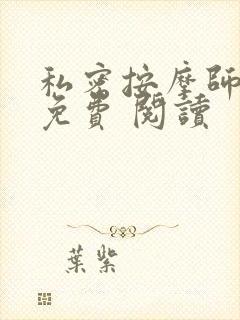 私密按摩師
免費 閱讀
葉紫